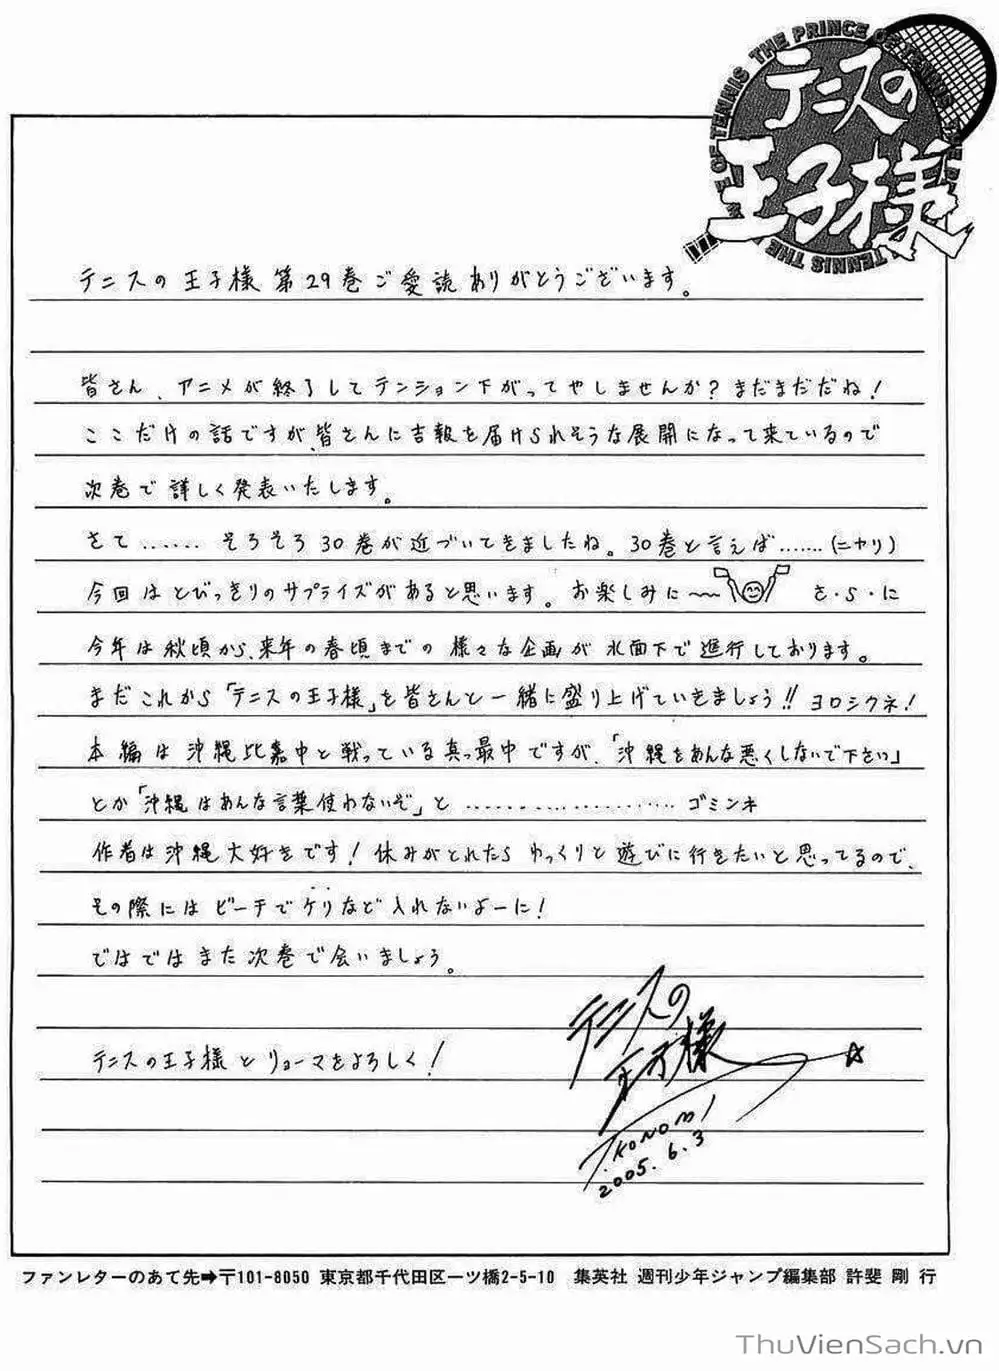 THE PRINCE OF TENNIS
テニスの
王子様
テニスの王子様 第29巻ご愛読ありがとうございます。
皆さん、アニメが終了してテンション下がってやしませんか？まだまだだね！
ここだけの話ですが、皆さんに吉報を届けられそうな展開になって来ているので
次巻で詳しく発表いたします。
さて……そろそろ30巻が近づいてきましたね。30巻と言えば……（ニヤリ）
今回はとびっきりのサプライズがあると思います。お楽しみに〜〜 さ・ら・に
今年は秋頃から、来年の春頃までの様々な企画が水面下で進行しております。
まだこれから「テニスの王子様」を皆さんと一緒に盛り上げていきましょう!! ヨロシクネ！
本編は沖縄比嘉中と戦っている真っ最中ですが、「沖縄をあんな悪くしないで下さい」
とか「沖縄はあんな言葉使わないぞ」と…………………… ゴミンネ
作者は沖縄大好きです！休みがとれたらゆっくりと遊びに行きたいと思ってるので、
その際にはビーチでケリなど入れないよーに！
ではでは また次巻で会いましょう。
テニスの王子様とリョーマをよろしく！
テニスの
王子様
T.KONOMI
2005.6.3
ファンレターのあて先➡〒101-8050 東京都千代田区一ツ橋2-5-10 集英社 週刊少年ジャンプ編集部 許斐 剛 行
ThuVienSach.vn